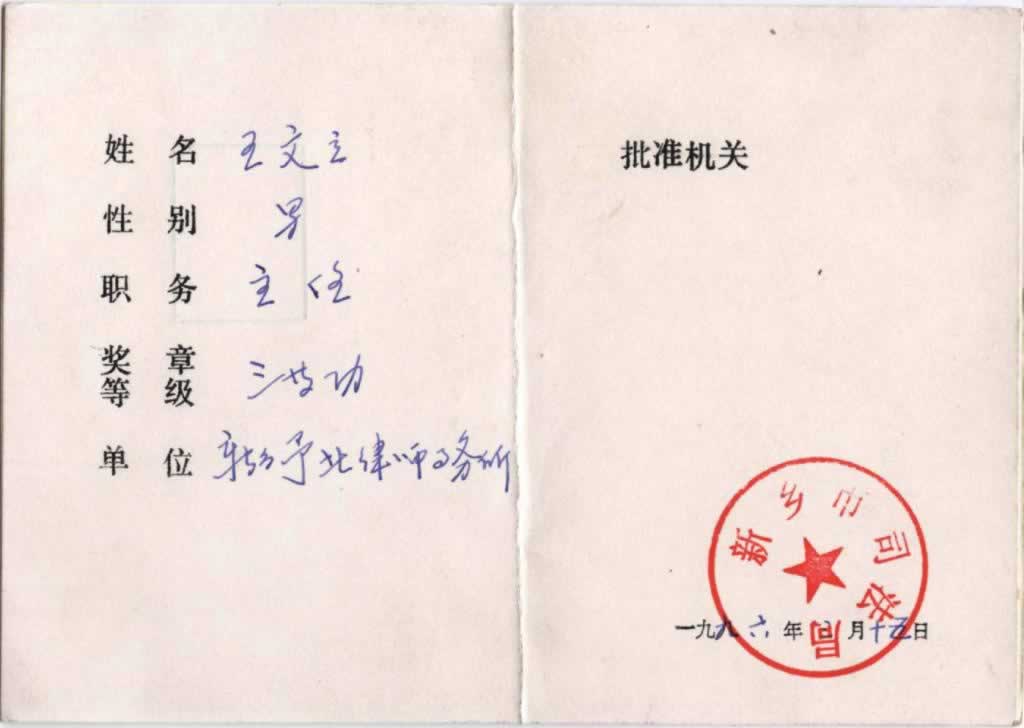 姓 名 王文立
性 别 男
职 务 主任
奖 章
等 级 三等功
单 位 予北律师事务所
批准机关
新乡市司法局
一九八六年 月十五日